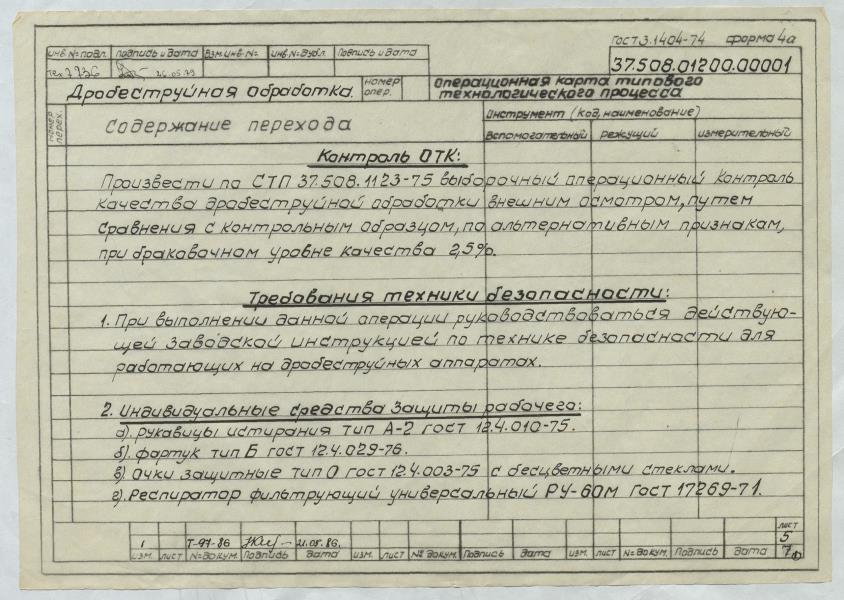 ГОСТ 3.1404-74 форма 4а
Инв. № подл. Подпись и дата Взм. инв. № Инв. № дубл. Подпись и дата
37.508.01200.00001
Тех 7936 26.05.79
Дробеструйная обработка. номер опер. Операционная карта типового
технологического процесса
номер перех. Содержание перехода Инструмент (код, наименование)
вспомогательный режущий измерительный
Контроль ОТК:
Произвести по СТП 37.508.1123-75 выборочный операционный контроль
качества дробеструйной обработки внешним осмотром, путем
сравнения с контрольным образцом, по альтернативным признакам,
при браковочном уровне качества 2,5%.
Требования техники безопасности:
1. При выполнении данной операции руководствоваться действую-
щей заводской инструкцией по технике безопасности для
работающих на дробеструйных аппаратах.
2. Индивидуальные средства защиты рабочего:
а). Рукавицы истирания тип А-2 ГОСТ 12.4.010-75.
б). фартук тип Б ГОСТ 12.4.029-76.
в). Очки защитные тип О ГОСТ 12.4.003-75 с бесцветными стеклами.
г). Респиратор фильтрующий универсальный РУ-60м ГОСТ 17269-71.
лист
1 Т-97-86 21.05.86. 5
изм. лист № докум. Подпись дата изм. лист № докум. Подпись дата изм. лист № докум. Подпись дата 7